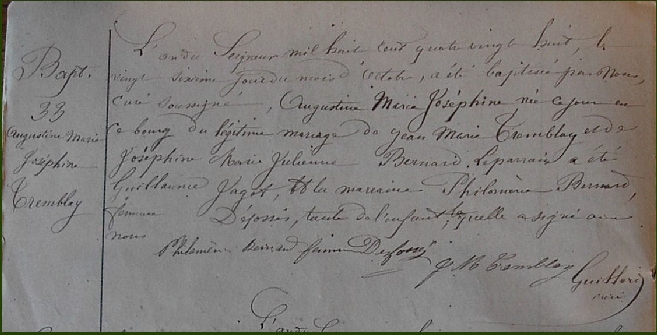 Bapt.
33
Augustine Marie
Joséphine
Tremblay
L'an du Seigneur mil huit cent quatre vingt huit, le
vingt sixième jour du mois d'Octobre, a été baptisée par Nous,
curé soussigné, Augustine Marie Joséphine née ce jour en
ce bourg du légitime mariage de Jean Marie Tremblay et de
Joséphine Marie Julienne Bernard. Le parrain a été
Guillaume Jagot, et la marraine Philomène Bernard,
femme tante de l'enfant, laquelle a signé avec
nous
Philomène Bernard femme
J M Tremblay